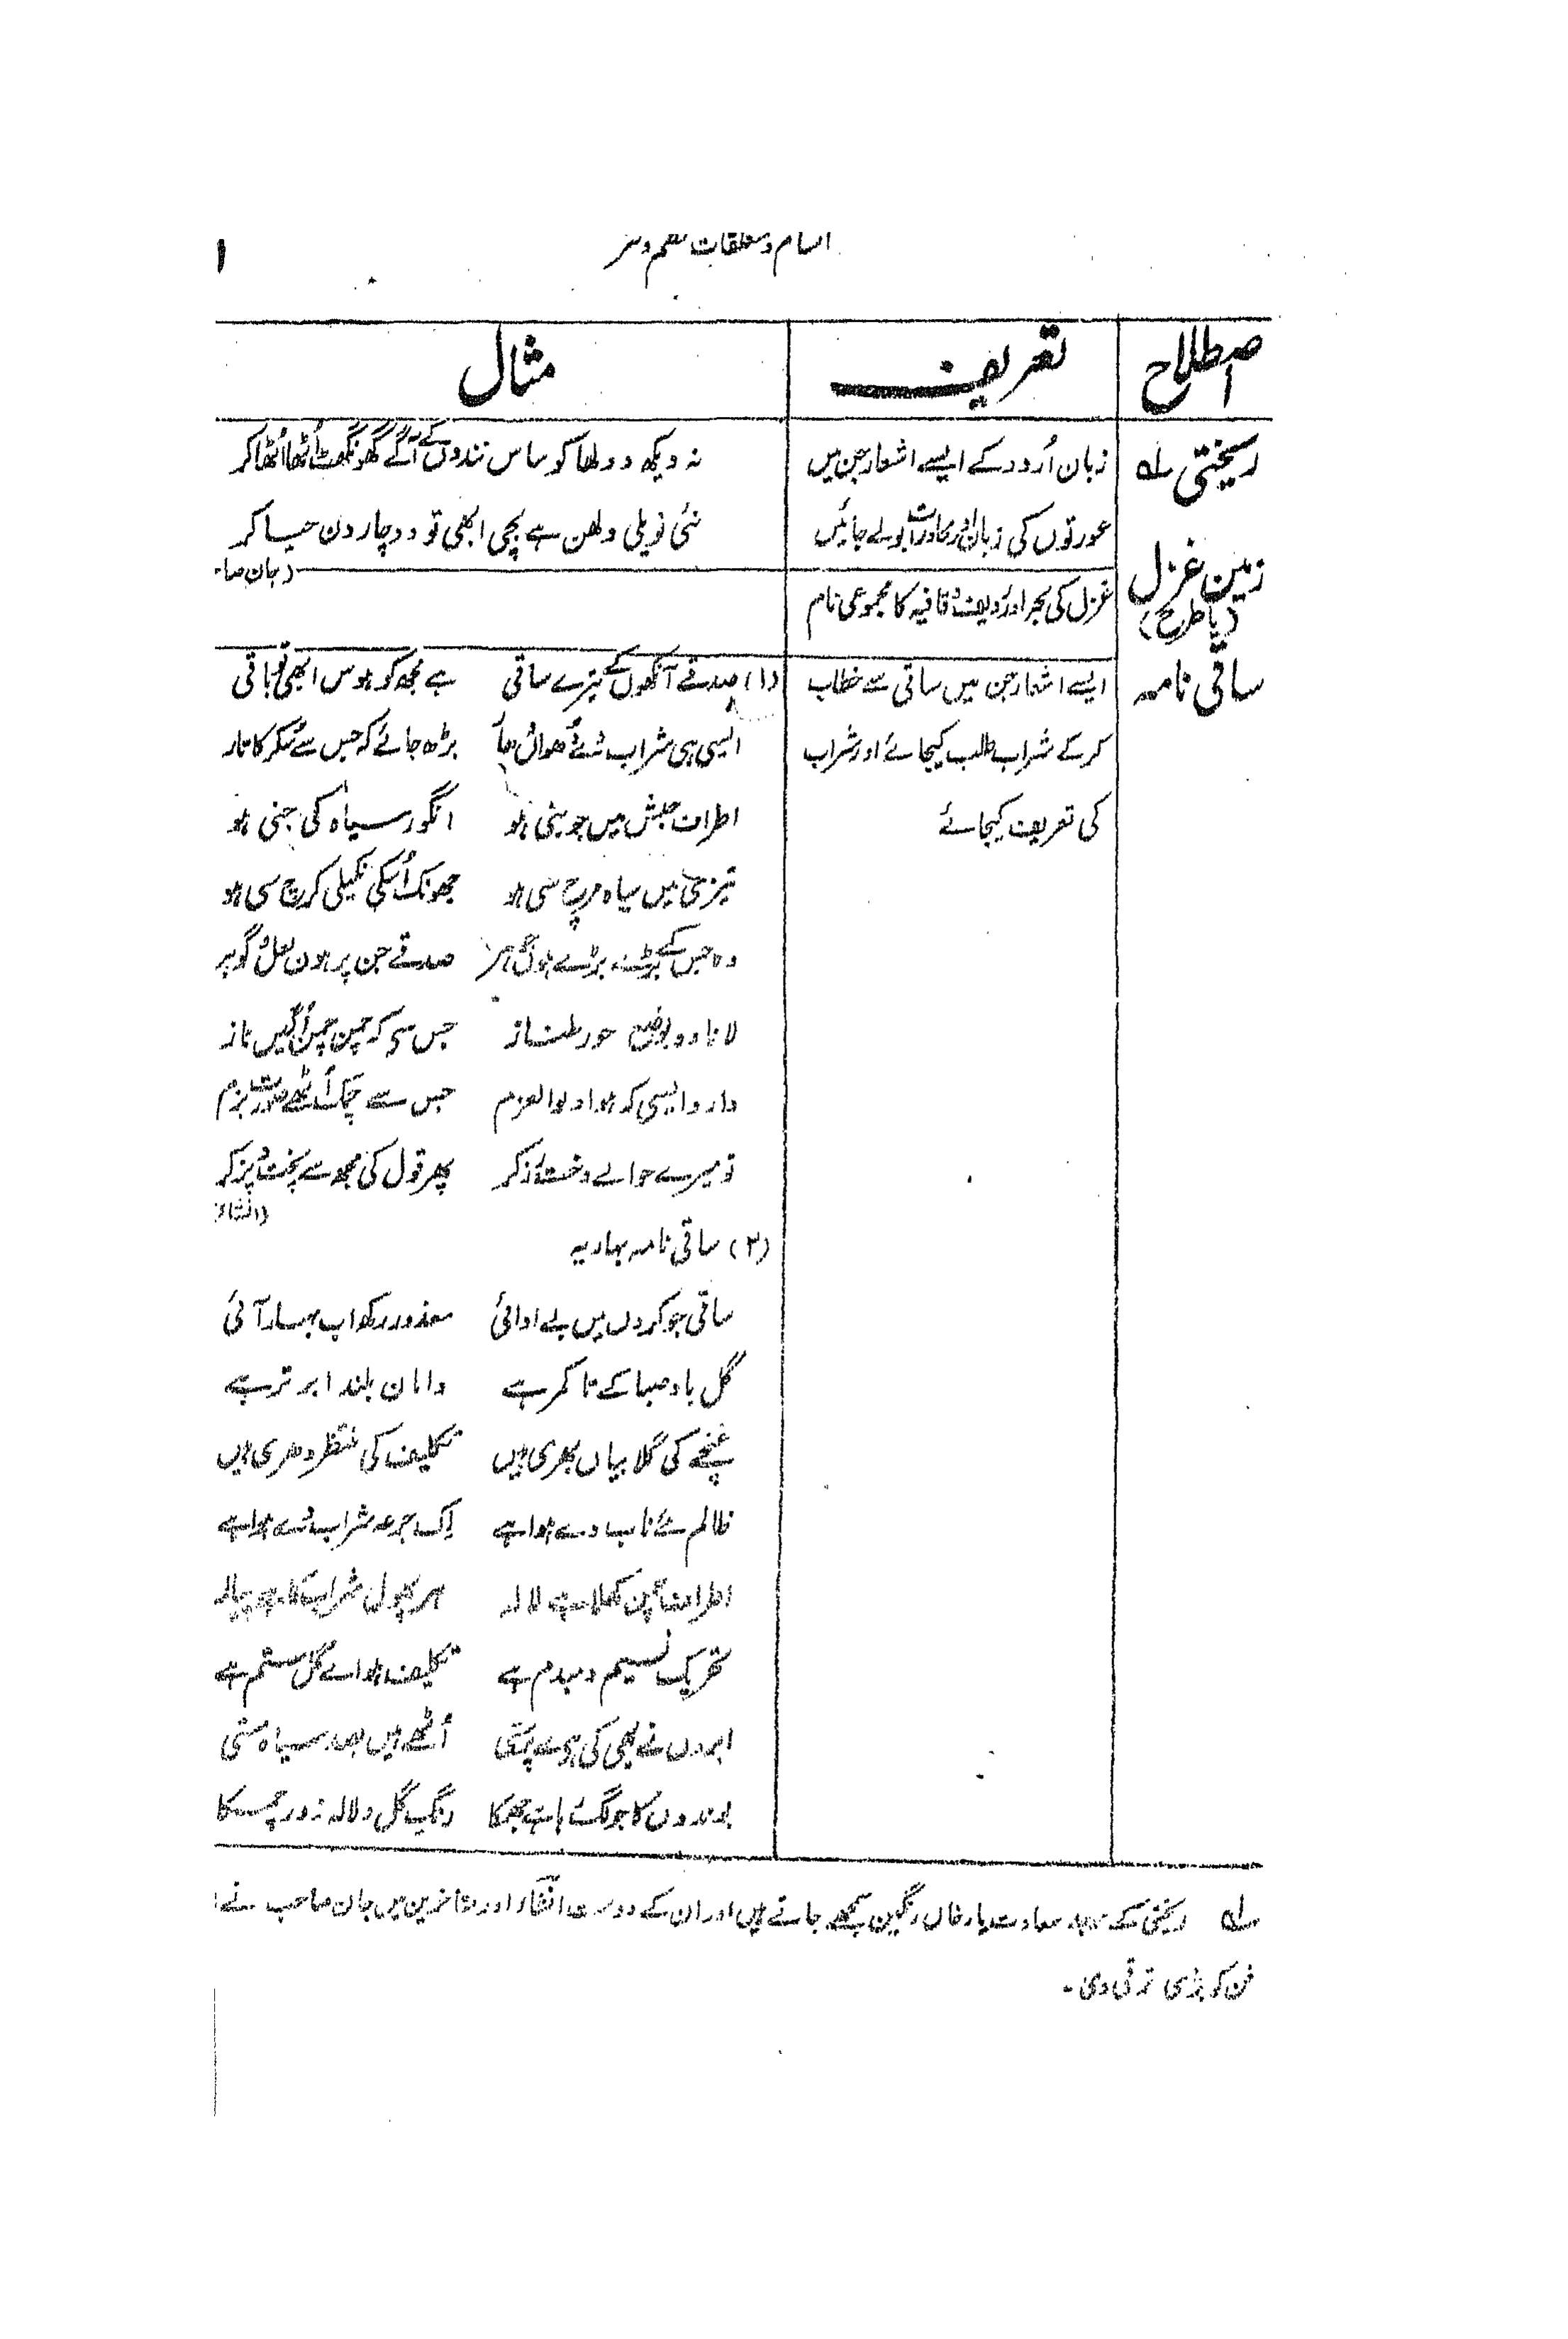 اقسام و متعلقات نظم و نثر
۱
اصطلاح
تعریف
مثال
ریختی ؎۱
زبان اُردو کے ایسے اشعار جن میں
عورتوں کی زبان اور محاورات بولے جائیں
نہ دیکھ دولھا کو ساس نندوں کے آگے گھونگھٹ اُٹھا اُٹھا کر
نئی نویلی دلھن ہے بچی ابھی تو دو چار دن حیا کر
(جان صا
زمین غزل
(یا طرح)
غزل کی بحر اور ردیف و قافیہ کا مجموعی نام
ساقی نامہ
ایسے اشعار جن میں ساقی سے خطاب
کر کے شراب طلب کیجائے اور شراب
کی تعریف کیجائے
(۱) صدقے آنکھوں کے تیرے ساقی ہے مجھ کو ہوس ابھی باقی
ایسی ہی شراب دے دھواں بڑھ جائے کہ جس سے سُکر کا تار
اطراف حبش میں جو بنی ہو انگور سیاہ کی جنی ہو
تیزی میں سیاہ مرچ سی ہو جھونک اُسکی نکیلی کرچ سی ہو
وہ جس کے بڑے بڑے ہوں صدقے جن پر ہوں لعل و گوہر
لانا وہ بوضع حور طناز جس سے کہ چمن چمن اُگیں ناز
دارو ایسی کہ ہو اولوالعزم جس سے چمک اُٹھے صورت بزم
تو میرے حوالے دخت رز کر پھر قول کی مجھ سے پخت و پز کر
(انشا
(۲) ساقی نامہ بہاریہ
ساقی جو کروں میں بے ادائی معذور رکھ اب بہار آئی
گل باد صبا کے تا کمر ہے دامان بلند ابر تر ہے
غنچے کی گلابیاں بھری ہیں تکلیف کی منتظر دھری ہیں
ظالم مئے ناب دے ہوا ہے اِک جرعہ شراب دے ہوا ہے
اطراف چمن کھلا ہے لالہ ہر پھول شراب کا ہے پیالہ
تحریک نسیم دمبدم ہے تکلیف ہوائے گل ستم ہے
ابروں نے بھی کی ہے مے پرستی اُٹھے ہیں بصد سیاہ مستی
بوندوں کا جو لگ رہا ہے جھمکا رنگ گل و لالہ زور چمکا
؎۱ ریختی کے موجد سعادت یار خاں رنگین سمجھے جاتے ہیں اور ان کے دوست انشا اور متاخرین میں جان صاحب نے ا
فن کو بڑی ترقی دی۔